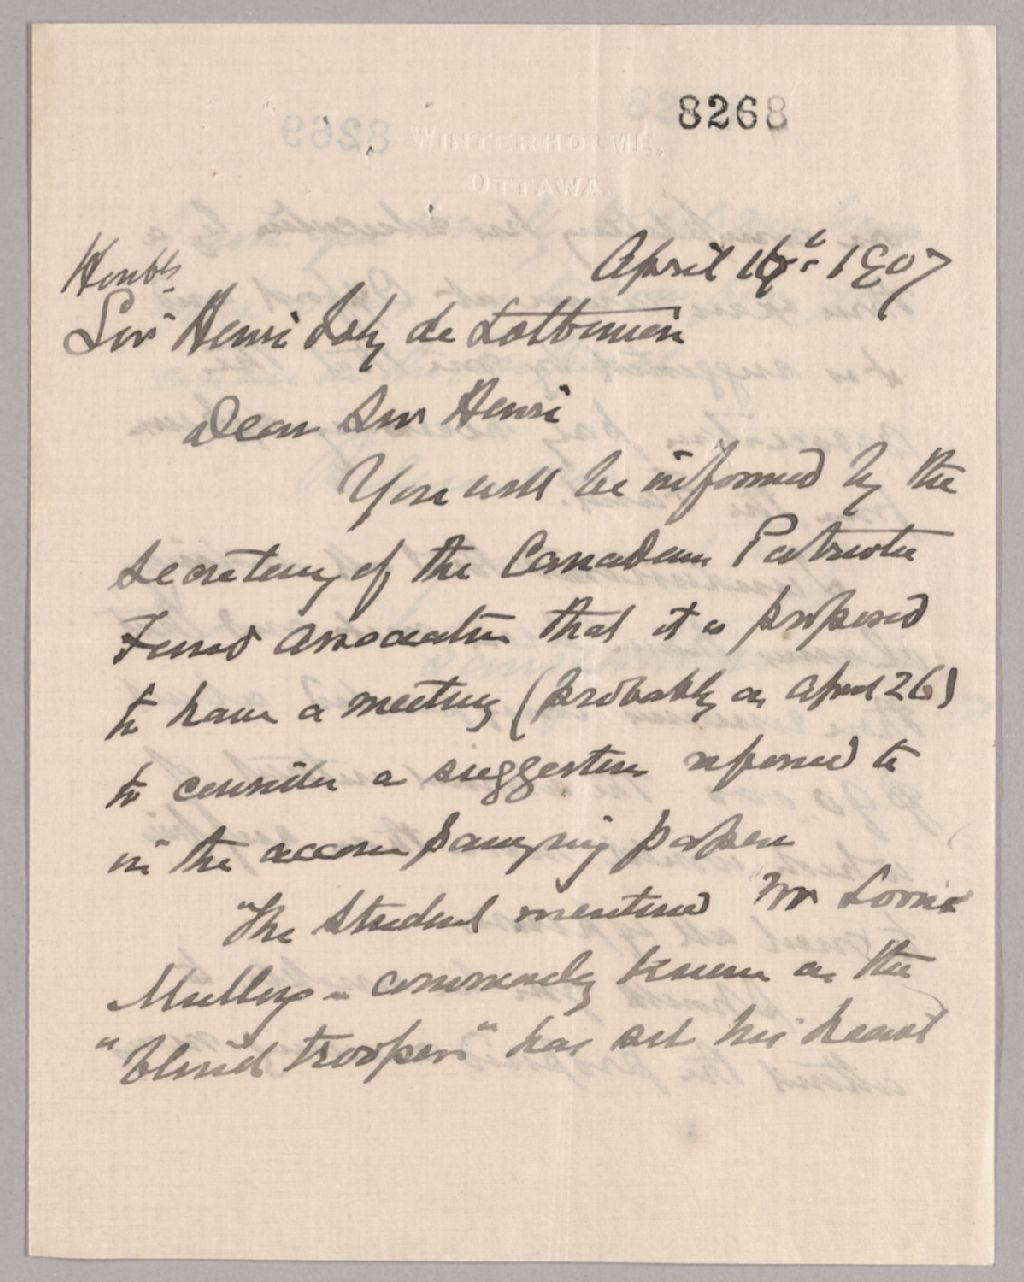 8268
WINTERHOLME,
OTTAWA.
April 16th 1907
Honble
Sir Henri Joly de Lotbiniere
Dear Sir Henri
You will be informed by the
Secretary of the Canadian Patriotic
Fund Association that it is proposed
to have a meeting (probably on April 26)
to consider a suggestion referred to
in the accompanying paper
The student mentioned Mr Lorne
Mulloy - commonly known as the
"blind trooper" has set his heart